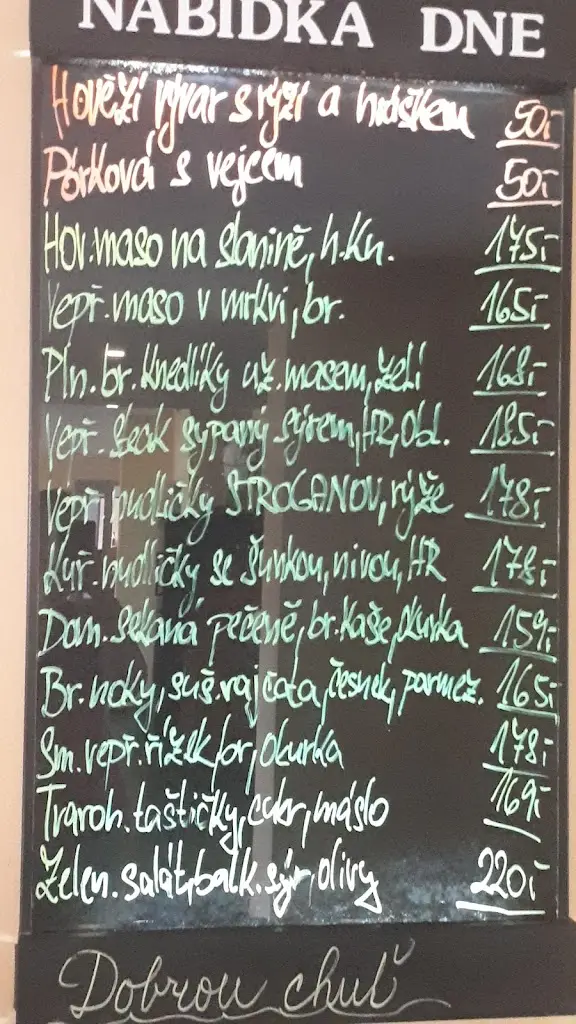 NABÍDKA DNE
Hovězí vývar s rýží a hráškem 50,-
Pórková s vejcem 50,-
Hov. maso na slanině, h.kn. 175,-
Vepř. maso v mrkvi, br. 165,-
Pln. br. knedlíky uz. masem, zelí 168,-
Vepř. steak sypaný sýrem, HR, obl. 185,-
Vepř. nudličky STROGANOV, rýže 178,-
Kuř. nudličky se šunkou, nivou, HR 178,-
Dom. sekaná pečeně, br. kaše, okurka 159,-
Br. noky, suš. rajčata, česnek, parmez. 165,-
Sm. vepř. řízek, br, okurka 178,-
Tvaroh. taštičky, cukr, máslo 169,-
Zelen. salát, balk. sýr, olivy 220,-
Dobrou chuť